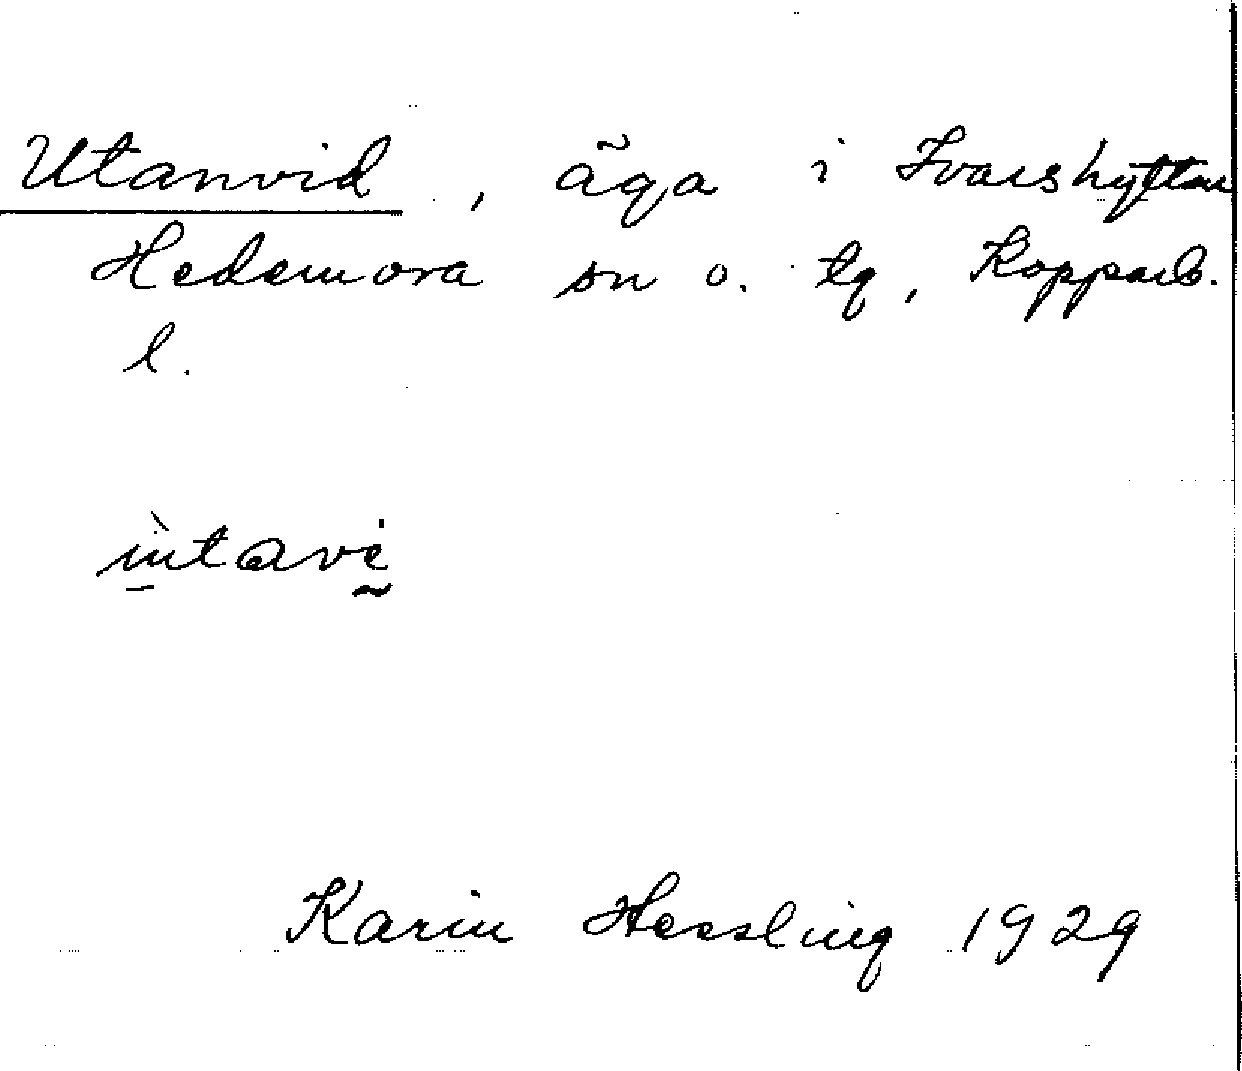 Utanvid, äga i Ivarshyttan
Hedemora sn o. tg, Kopparb.
l.
ùtavi
Karin Hessling 1929